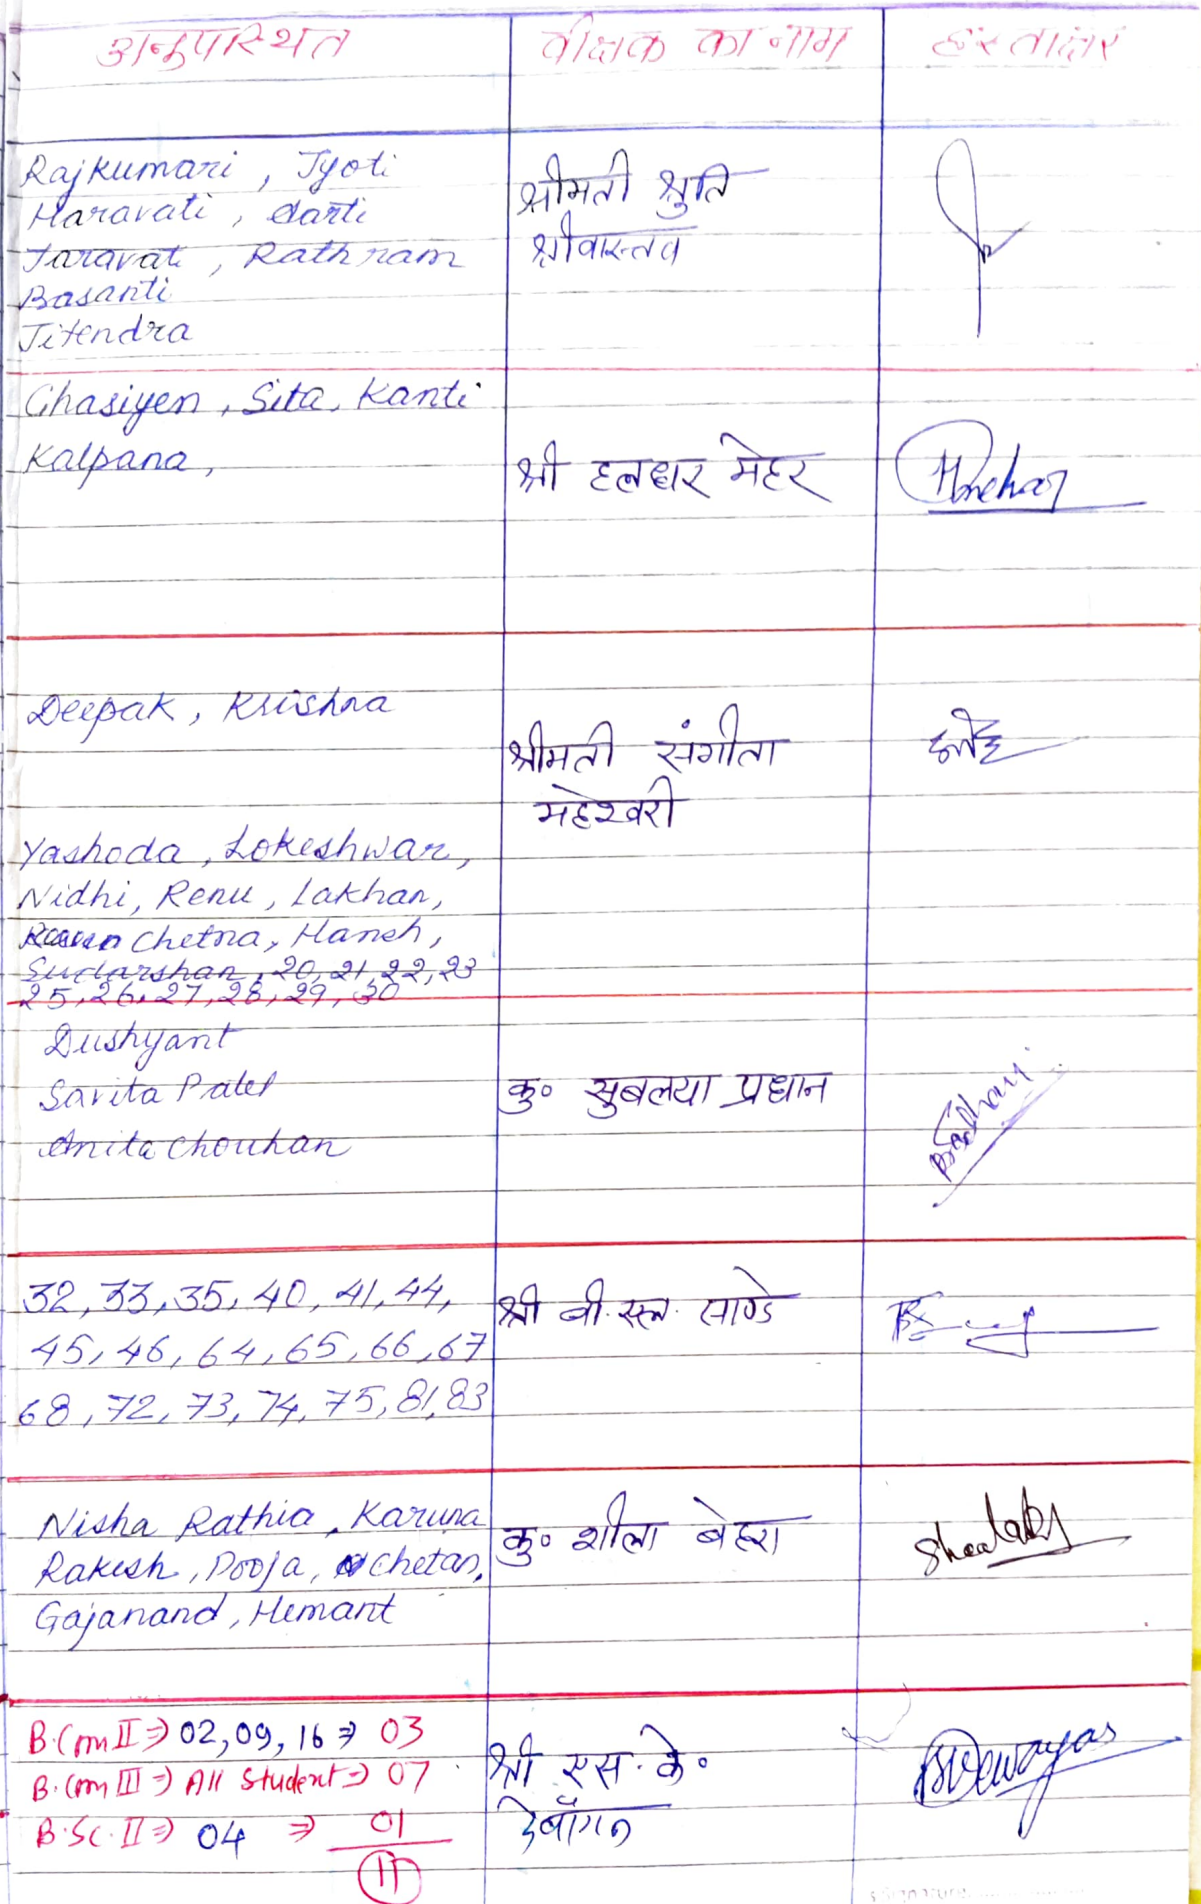 अनुपस्थित वीक्षक का नाम हस्ताक्षर
Rajkumari, Jyoti
Haravati, Aarti
Taravati, Rathram
Basanti
Jitendra
श्रीमती श्रुति
श्रीवास्तव
Ghasiyen, Sita, Kanti
Kalpana,
श्री हलधर मेहर
Deepak, Krishna
श्रीमती संगीता
महेश्वरी
Yashoda, Lokeshwar,
Nidhi, Renu, Lakhan,
Chetna, Hansh,
Sudarshan, 20, 21, 22, 23
25, 26, 27, 28, 29, 30
Dushyant
Savita Patel
Anita Chouhan
कु० सुबलया प्रधान
Pradhan
32, 33, 35, 40, 41, 44,
45, 46, 64, 65, 66, 67
68, 72, 73, 74, 75, 81, 83
श्री बी.एल. साण्डे
Nisha Rathia, Karuna
Rakesh, Pooja, Chetan,
Gajanand, Hemant
कु० शीला बेहरा
B.Com II ⇒ 02, 09, 16 ⇒ 03
B.Com III ⇒ All Student ⇒ 07
B.Sc. II ⇒ 04 ⇒ 01
11
श्री एस.के.
देवाँगन